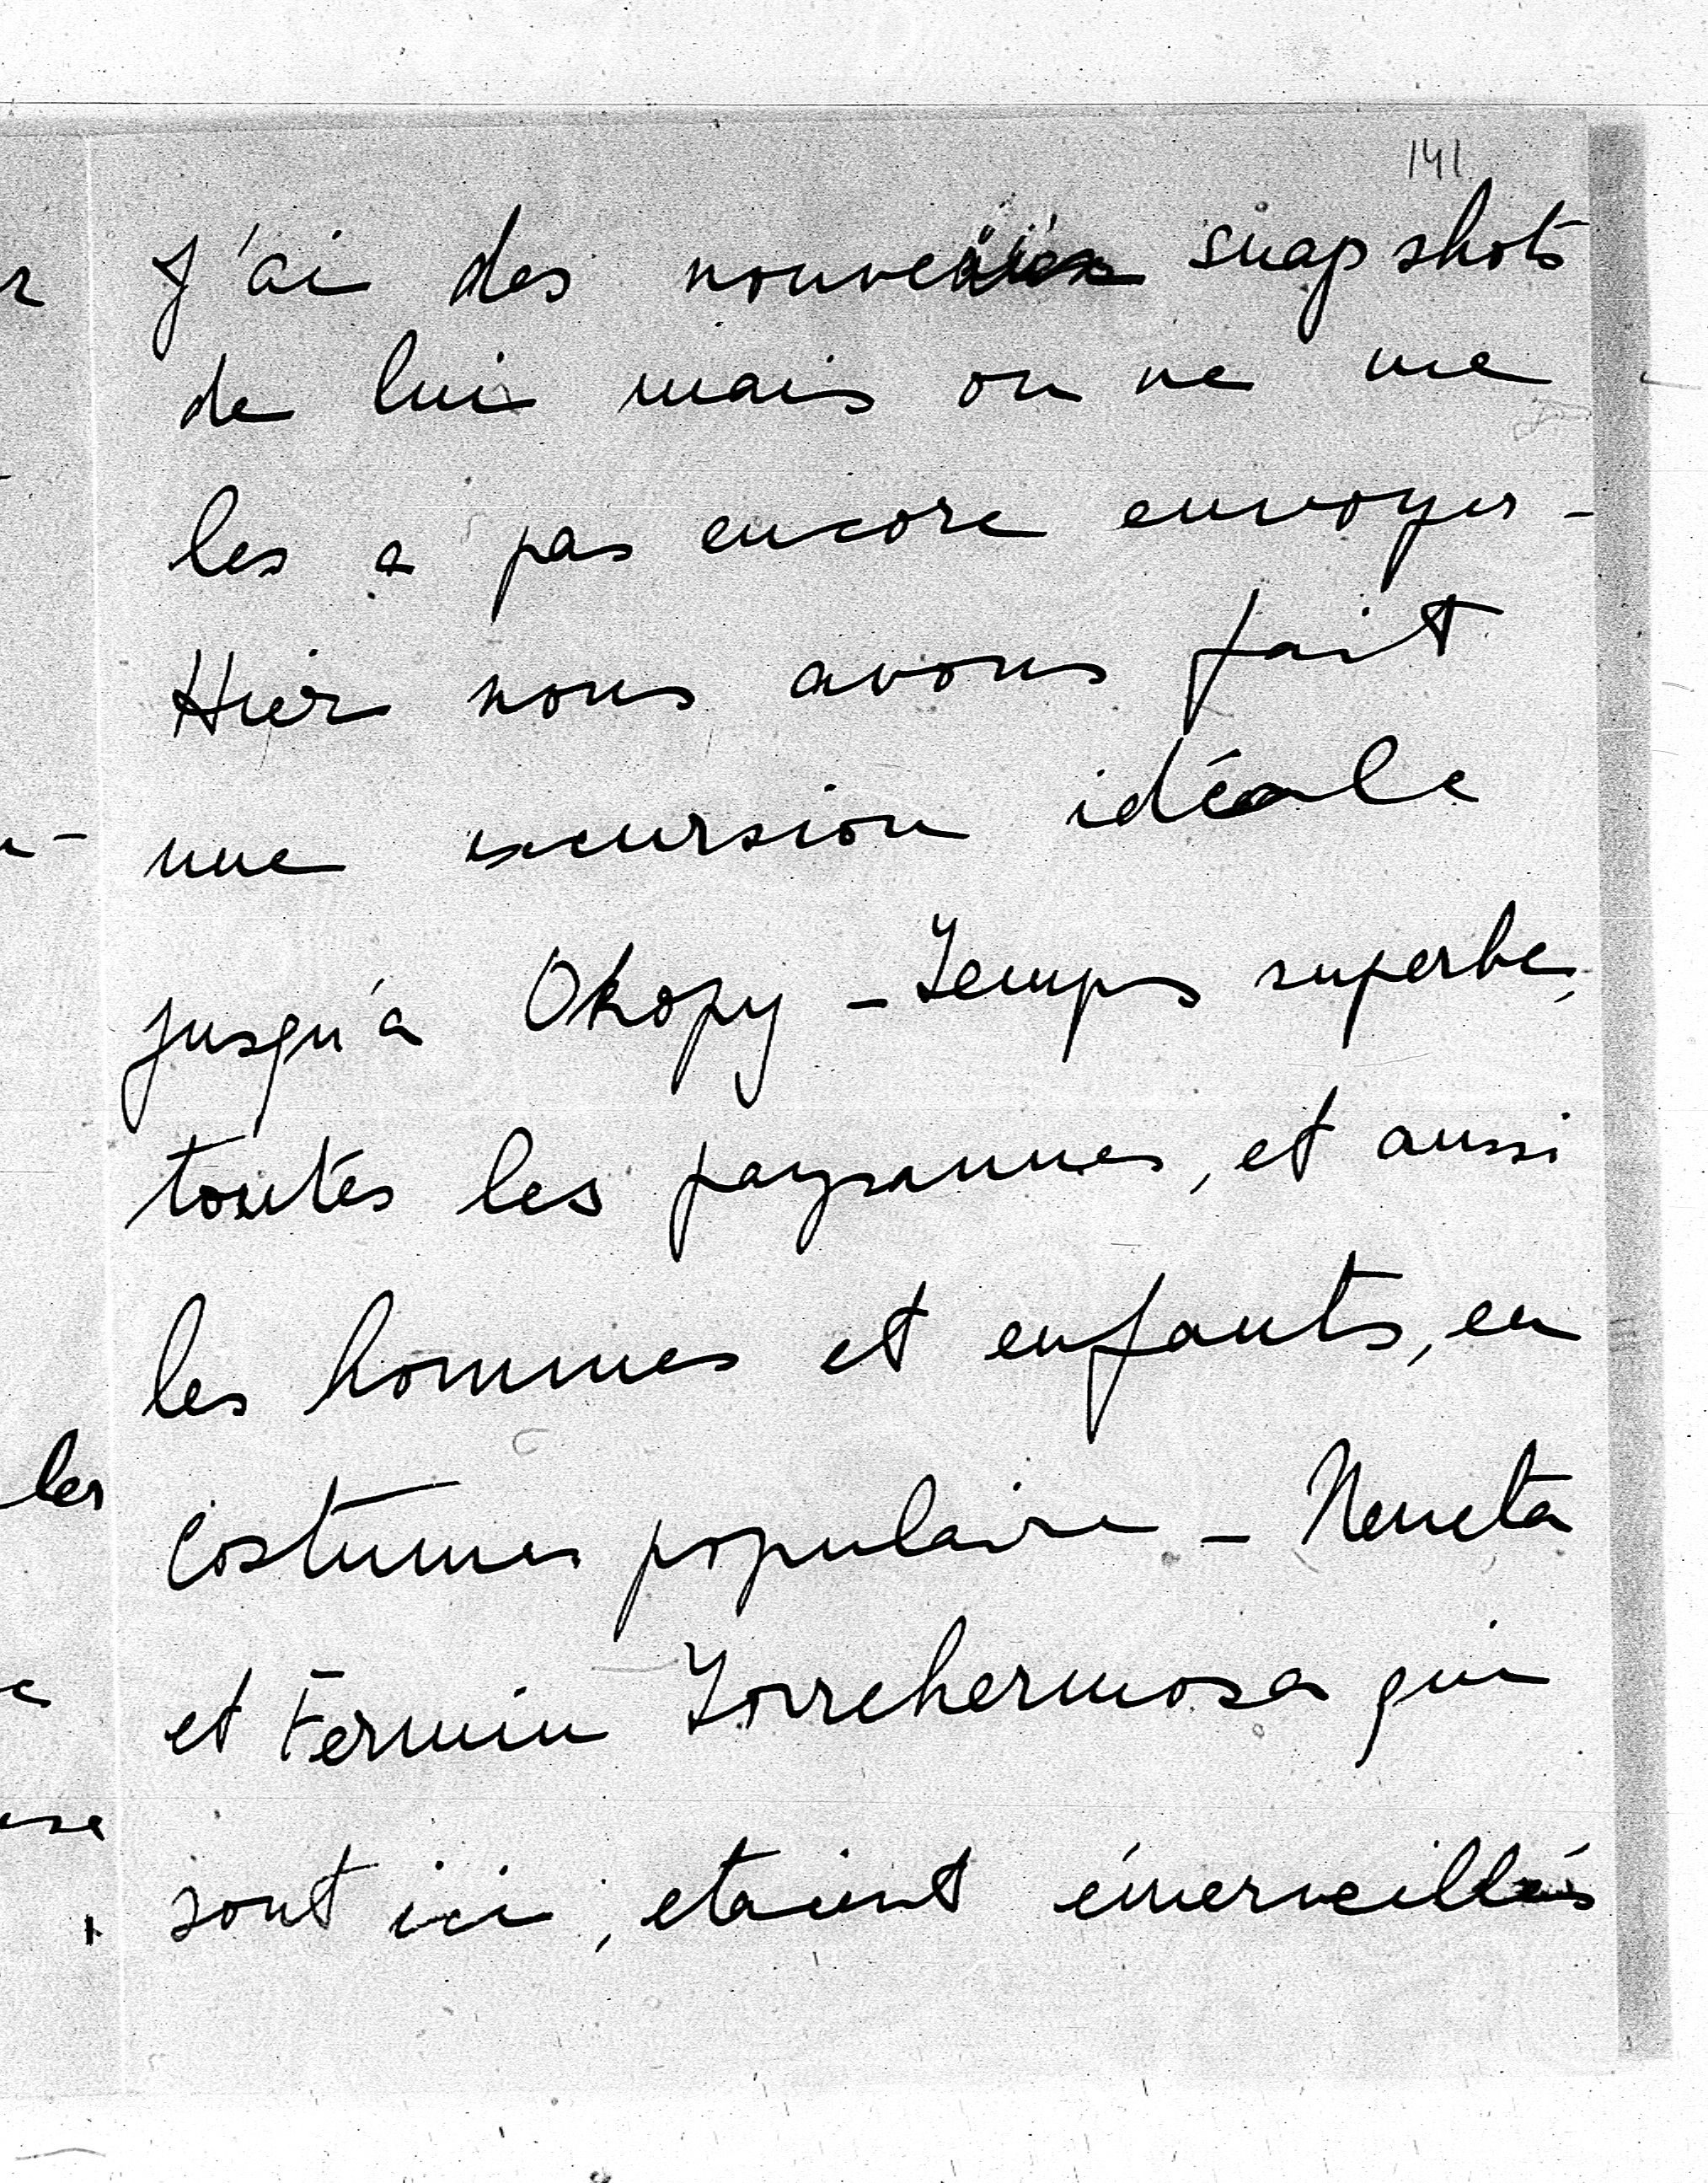 141
J'ai des nouveaux snapshots
de lui mais on ne me
les a pas encore envoyes -
Hier nous avons fait
une excursion idéale
jusqu'à Okopy - Temps superbe,
toutes les paysannes, et aussi
les hommes et enfants, en
costumes populaire - Neneta
et Fermin Torrehermosa qui
sont ici, etaient émerveillés